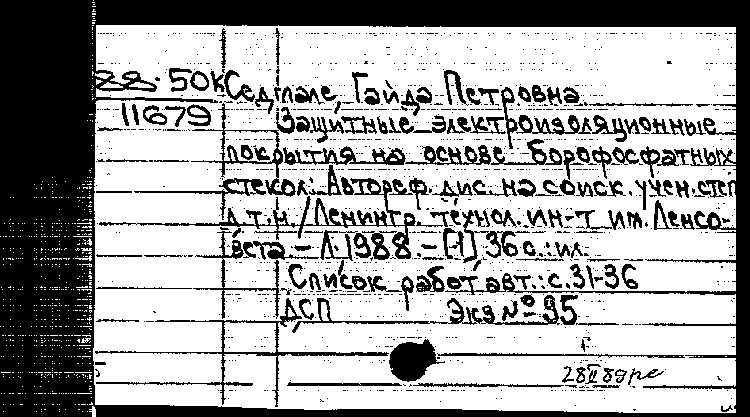 50К Седмале, Гайда Петровна
11679 Защитные электроизоляционные
покрытия на основе борофосфатных
стекол: Автореф. дис. на соиск. учен. степ
д.т.н. / Ленингр. технол. ин-т им. Ленсо-
вета – Л. 1988. – [1], 36 с.: ил.
Список работ авт.: с. 31-36
ДСП Экз № 95